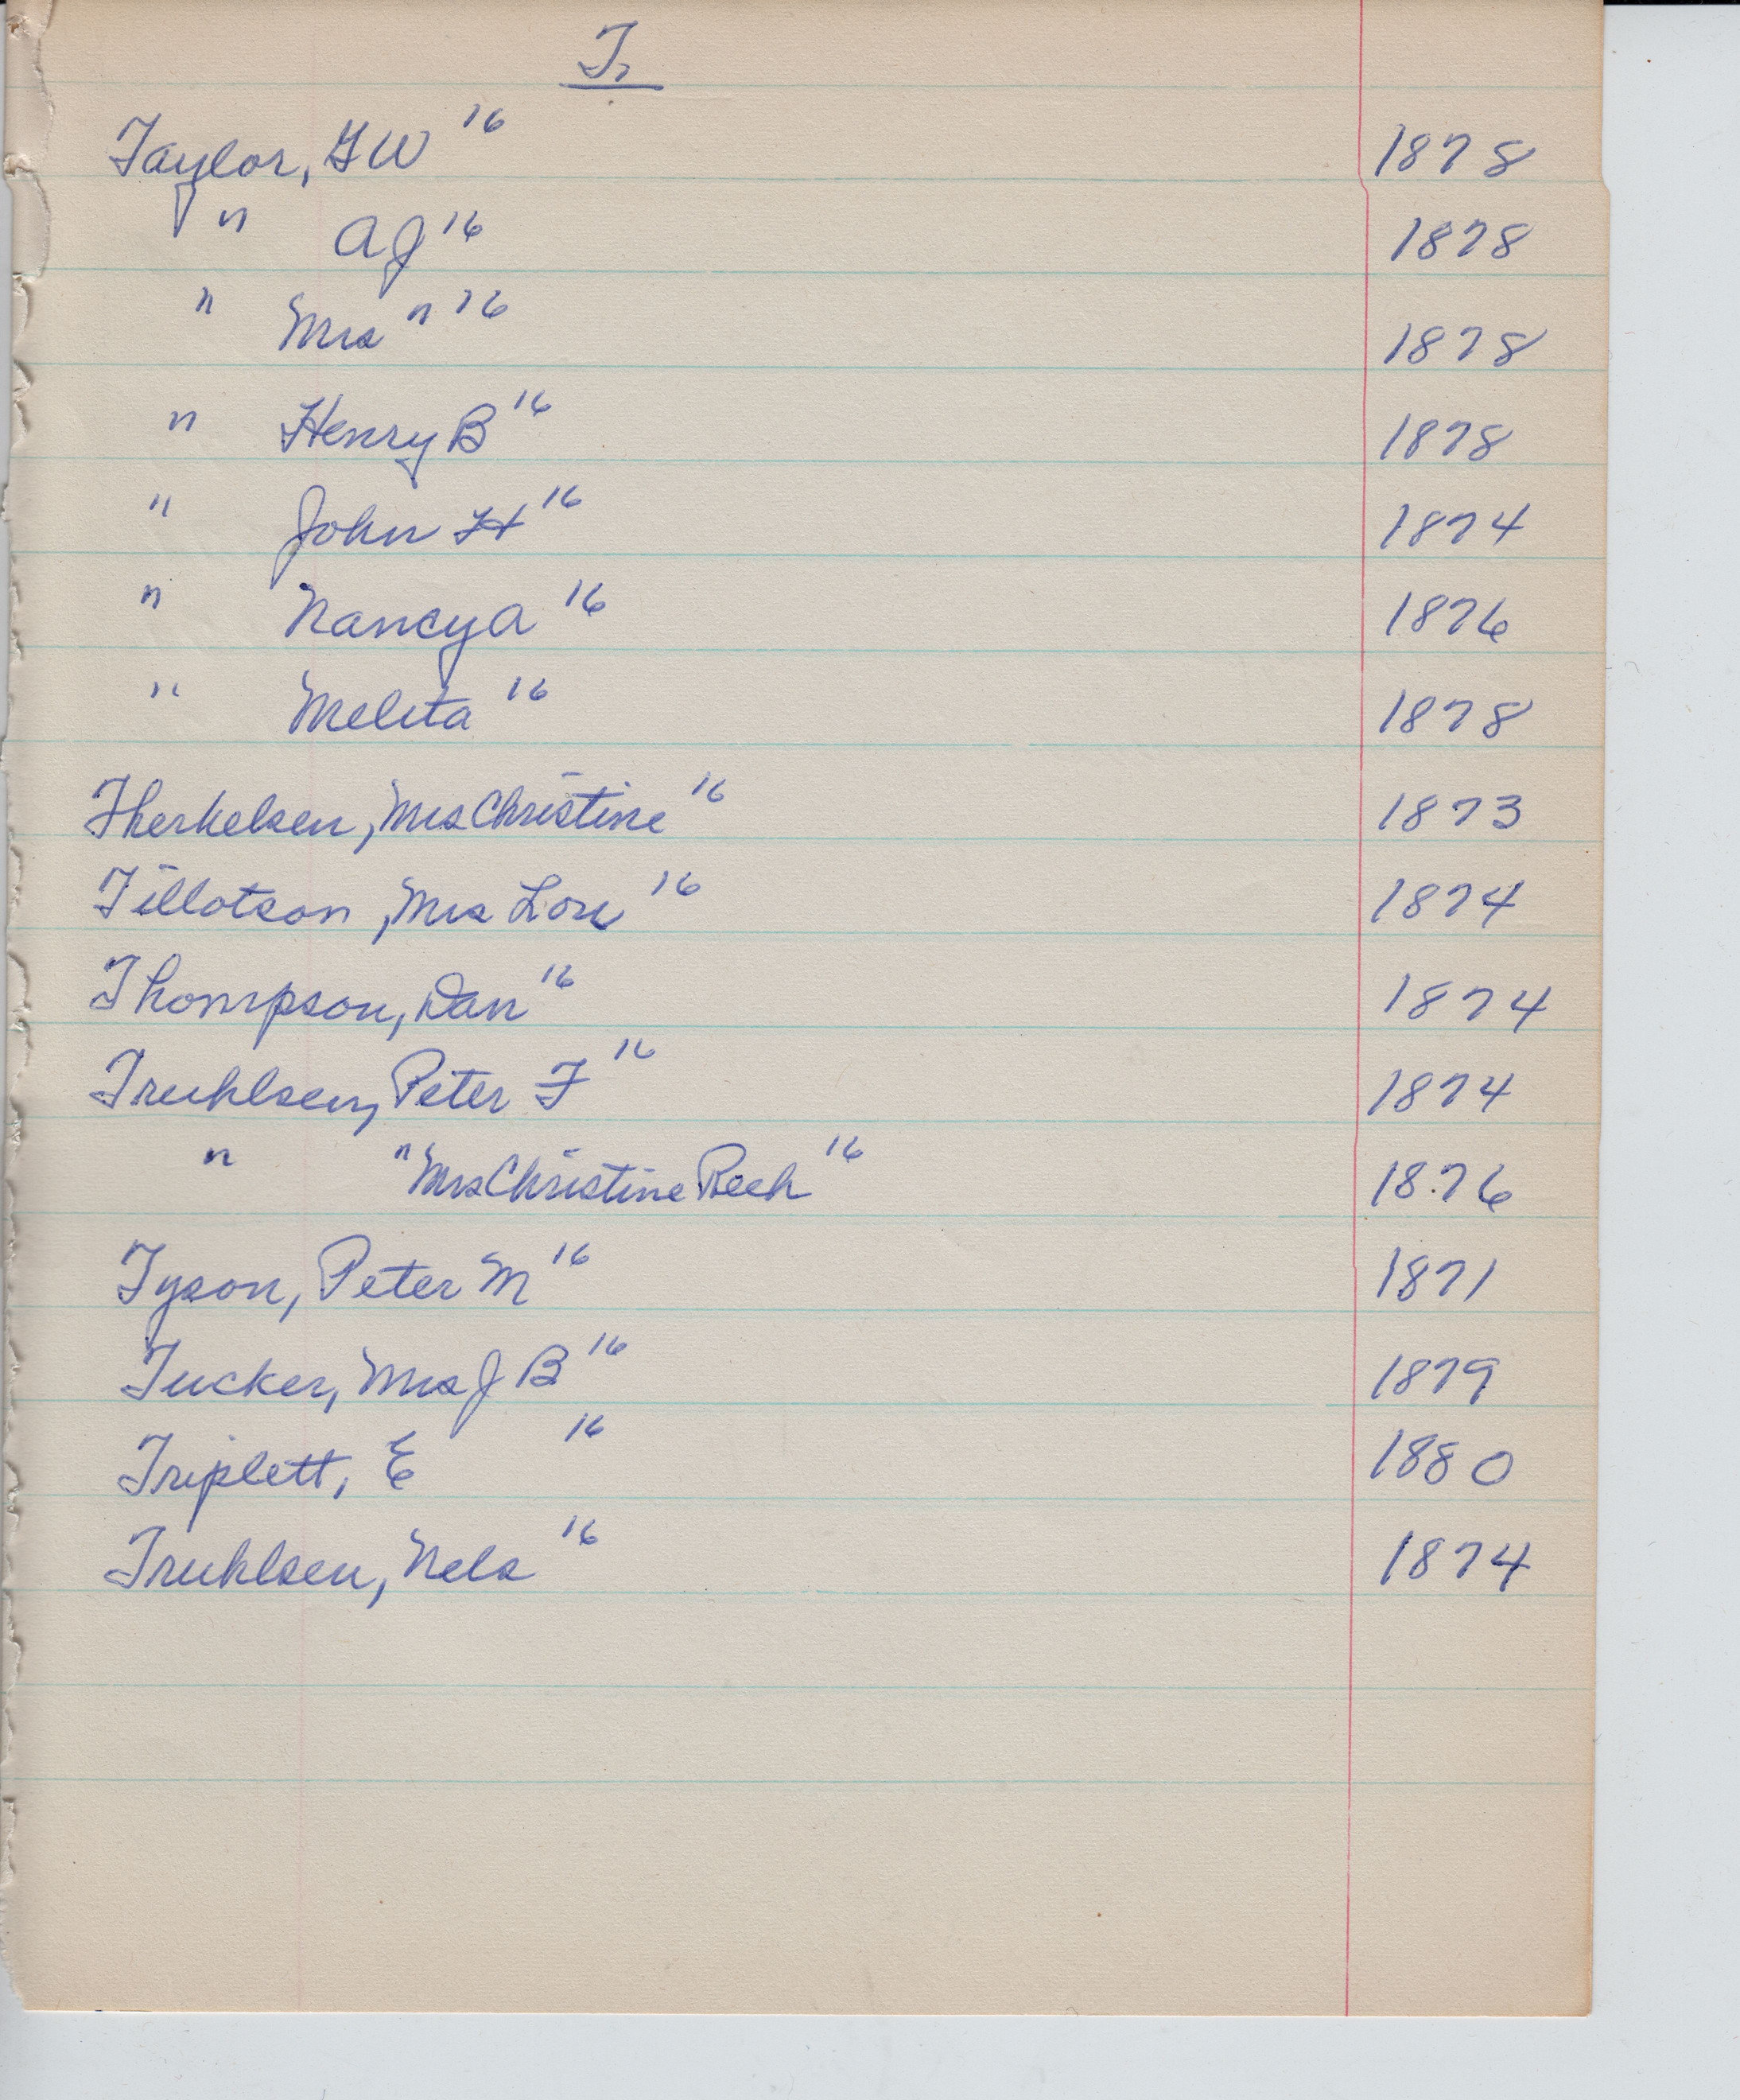 T.
Taylor, G W 16 1878
" A J 16 1878
" Mrs " 16 1878
" Henry B 16 1878
" John H 16 1874
" Nancy A 16 1876
" Meleta 16 1878
Therkelsen, Mrs Christine 16 1873
Tillotson, Mrs Lou 16 1874
Thompson, Dan 16 1874
Truhlsen, Peter F 16 1874
" " Mrs Christine Beck 16 1876
Tyson, Peter M 16 1871
Tucker, Mrs J B 16 1879
Triplett, E 16 1880
Truhlsen, Nels 16 1874